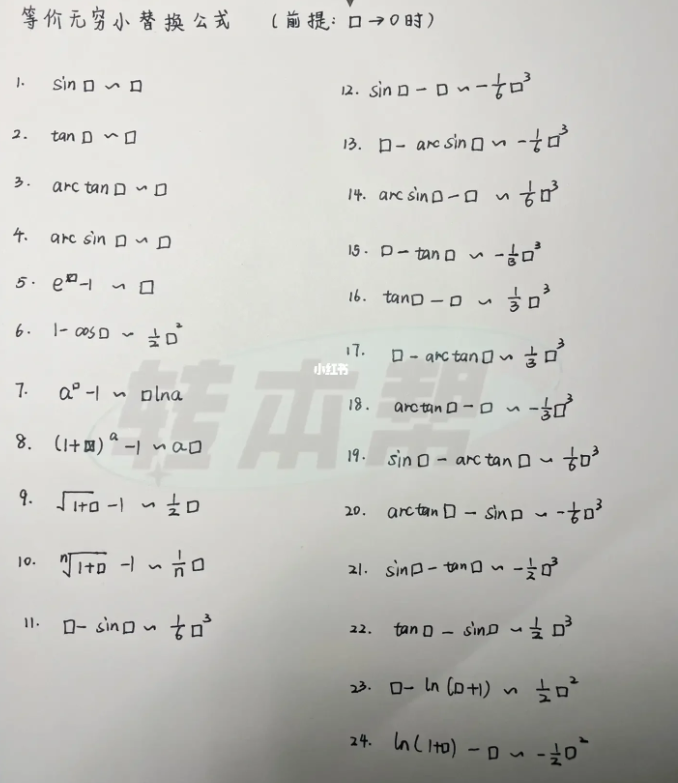 等价无穷小替换公式 (前提: □→0时)
1. sin□ ~ □
2. tan□ ~ □
3. arctan□ ~ □
4. arcsin□ ~ □
5. e^□-1 ~ □
6. 1-cos□ ~ 1/2□²
7. a^□-1 ~ □lna
8. (1+□)^a-1 ~ a□
9. √(1+□)-1 ~ 1/2□
10. ⁿ√(1+□)-1 ~ 1/n□
11. □-sin□ ~ 1/6□³
12. sin□-□ ~ -1/6□³
13. □-arcsin□ ~ -1/6□³
14. arcsin□-□ ~ 1/6□³
15. □-tan□ ~ -1/3□³
16. tan□-□ ~ 1/3□³
17. □-arctan□ ~ 1/3□³
18. arctan□-□ ~ -1/3□³
19. sin□-arctan□ ~ 1/6□³
20. arctan□-sin□ ~ -1/6□³
21. sin□-tan□ ~ -1/2□³
22. tan□-sin□ ~ 1/2□³
23. □-ln(□+1) ~ 1/2□²
24. ln(1+□)-□ ~ -1/2□²
小红书
转本帮